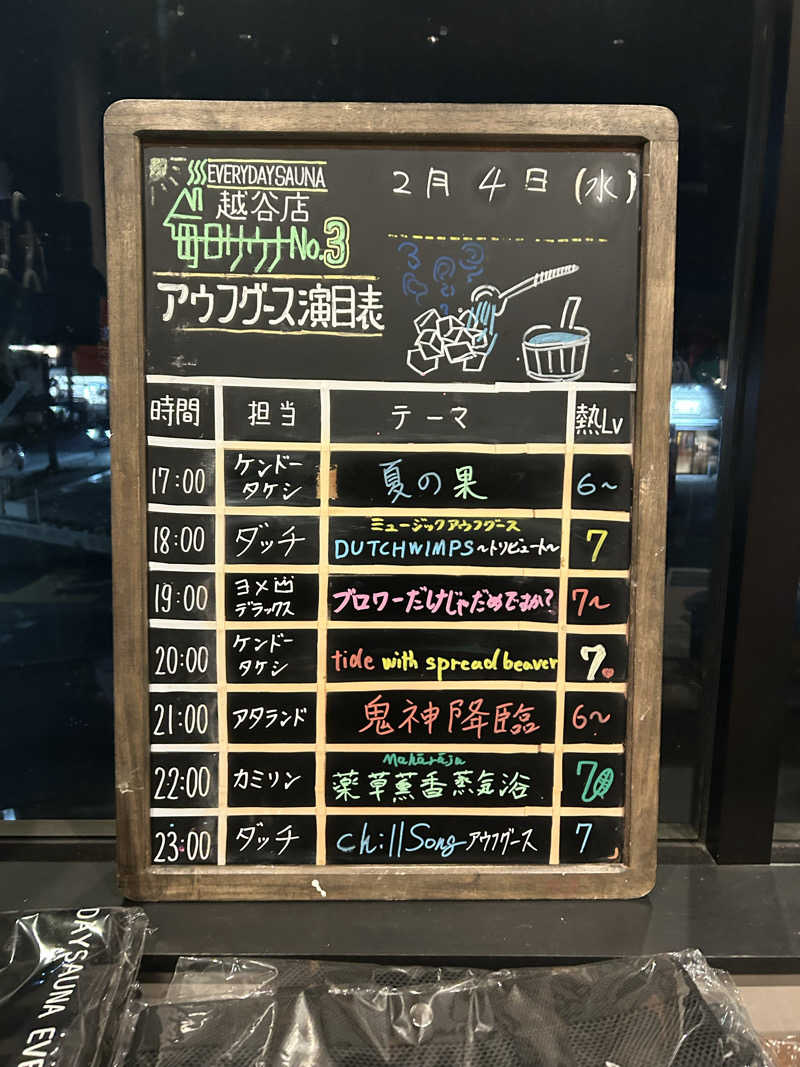 EVERYDAYSAUNA
越谷店
毎日サウナNo.3
アウフグース演目表
2月 4日 (水)
時間 担当 テーマ 熱Lv
17:00 ケンドー タケシ 夏の果 6~
18:00 ダッチ ミュージックアウフグース DUTCHWIMPS ~トリビュート~ 7
19:00 ヨメ凹 デラックス ブロワーだけじゃだめですか? 7~
20:00 ケンドー タケシ tide with spread beaver 7
21:00 アタランド 鬼神降臨 6~
22:00 カミリン Mahārāja 薬草薫香蒸気浴 7
23:00 ダッチ chill Song アウフグース 7
DAYSAUNA EVE